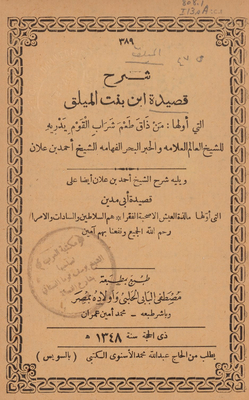 ٣٨٩
شرح
قصيدة ابن بنت الميلق
التي أولها : مَنْ ذَاقَ طَعْمَ شَرَابِ الْقَوْمِ يَدْرِيهِ
للشيخ العالم العلامه والحبر البحر الفهامه الشيخ أحمد بن علان
ويليه شرح الشيخ أحمد بن علان أيضا على
قصيدة أبي مدين
التي أولها : مالذة العيش إلا صحبة الفقرا * هم السلاطين والسادات والأمرا
رحم الله الجميع ونفعنا بهم آمين
طبع بمطبعة
مصطفى البابي الحلبي وأولاده بمصر
وباشر طبعه — محمد أمين عمران
ذي الحجة سنة ١٣٤٨ هـ
يطلب من الحاج عبد الله محمد الأسنوي الكتبي (بالسويس)